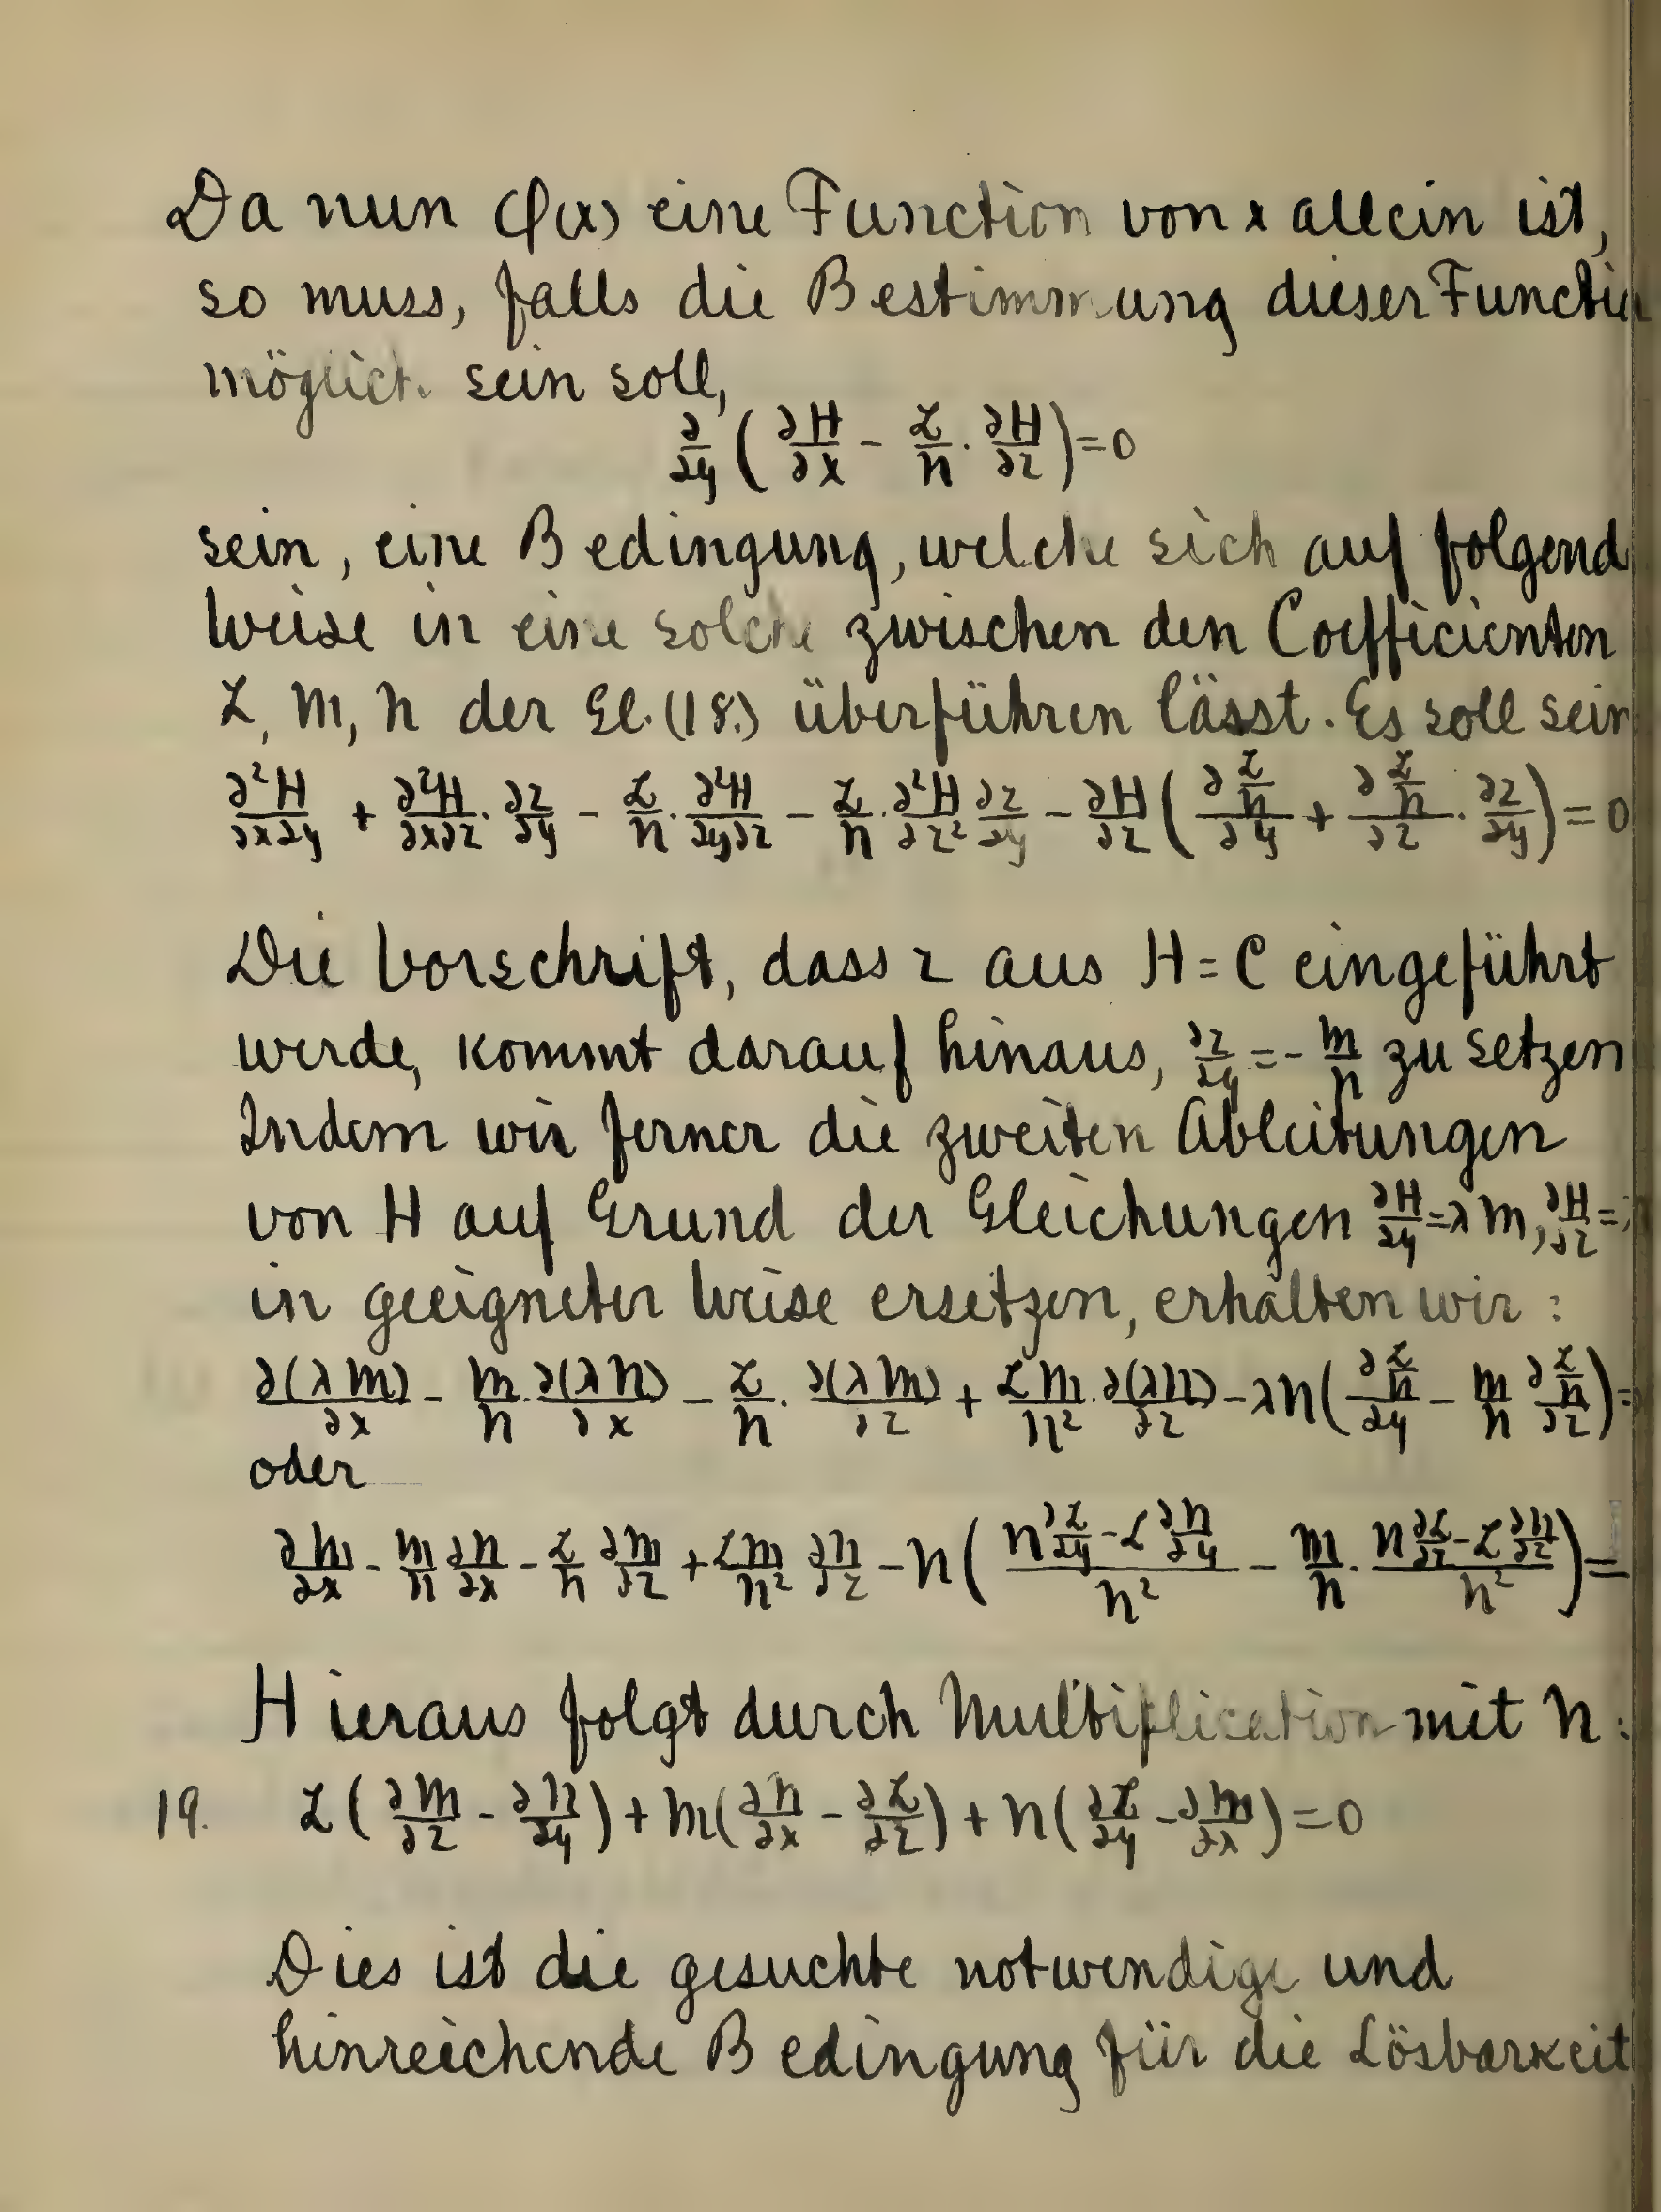 Da nun φ(x) eine Function von x allein ist,
so muss, falls die Bestimmung dieser Functio
möglich sein soll,
∂/∂y ( ∂H/∂x − L/N · ∂H/∂z ) = 0
sein, eine Bedingung, welche sich auf folgend
Weise in eine solche zwischen den Coefficienten
L, M, N der Gl. (18.) überführen lässt. Es soll sein
∂²H/∂x∂y + ∂²H/∂x∂z · ∂z/∂y − L/N · ∂²H/∂y∂z − L/N · ∂²H/∂z² ∂z/∂y − ∂H/∂z ( ∂(L/N)/∂y + ∂(L/N)/∂z · ∂z/∂y ) = 0
Die Vorschrift, dass z aus H = C eingeführt
werde, kommt darauf hinaus, ∂z/∂y = − M/N zu setzen
Indem wir ferner die zweiten Ableitungen
von H auf Grund der Gleichungen ∂H/∂y = λM, ∂H/∂z =
in geeigneter Weise ersetzen, erhalten wir :
∂(λM)/∂x − M/N · ∂(λN)/∂x − L/N · ∂(λM)/∂z + LM/N² · ∂(λN)/∂z − λN ( ∂(L/N)/∂y − M/N ∂(L/N)/∂z ) =
oder
∂M/∂x − M/N ∂N/∂x − L/N ∂M/∂z + LM/N² ∂N/∂z − N ( (N ∂L/∂y − L ∂N/∂y)/N² − M/N · (N ∂L/∂z − L ∂N/∂z)/N² ) =
Hieraus folgt durch Multiplication mit N :
19. L ( ∂M/∂z − ∂N/∂y ) + M ( ∂N/∂x − ∂L/∂z ) + N ( ∂L/∂y − ∂M/∂x ) = 0
Dies ist die gesuchte notwendige und
hinreichende Bedingung für die Lösbarkeit